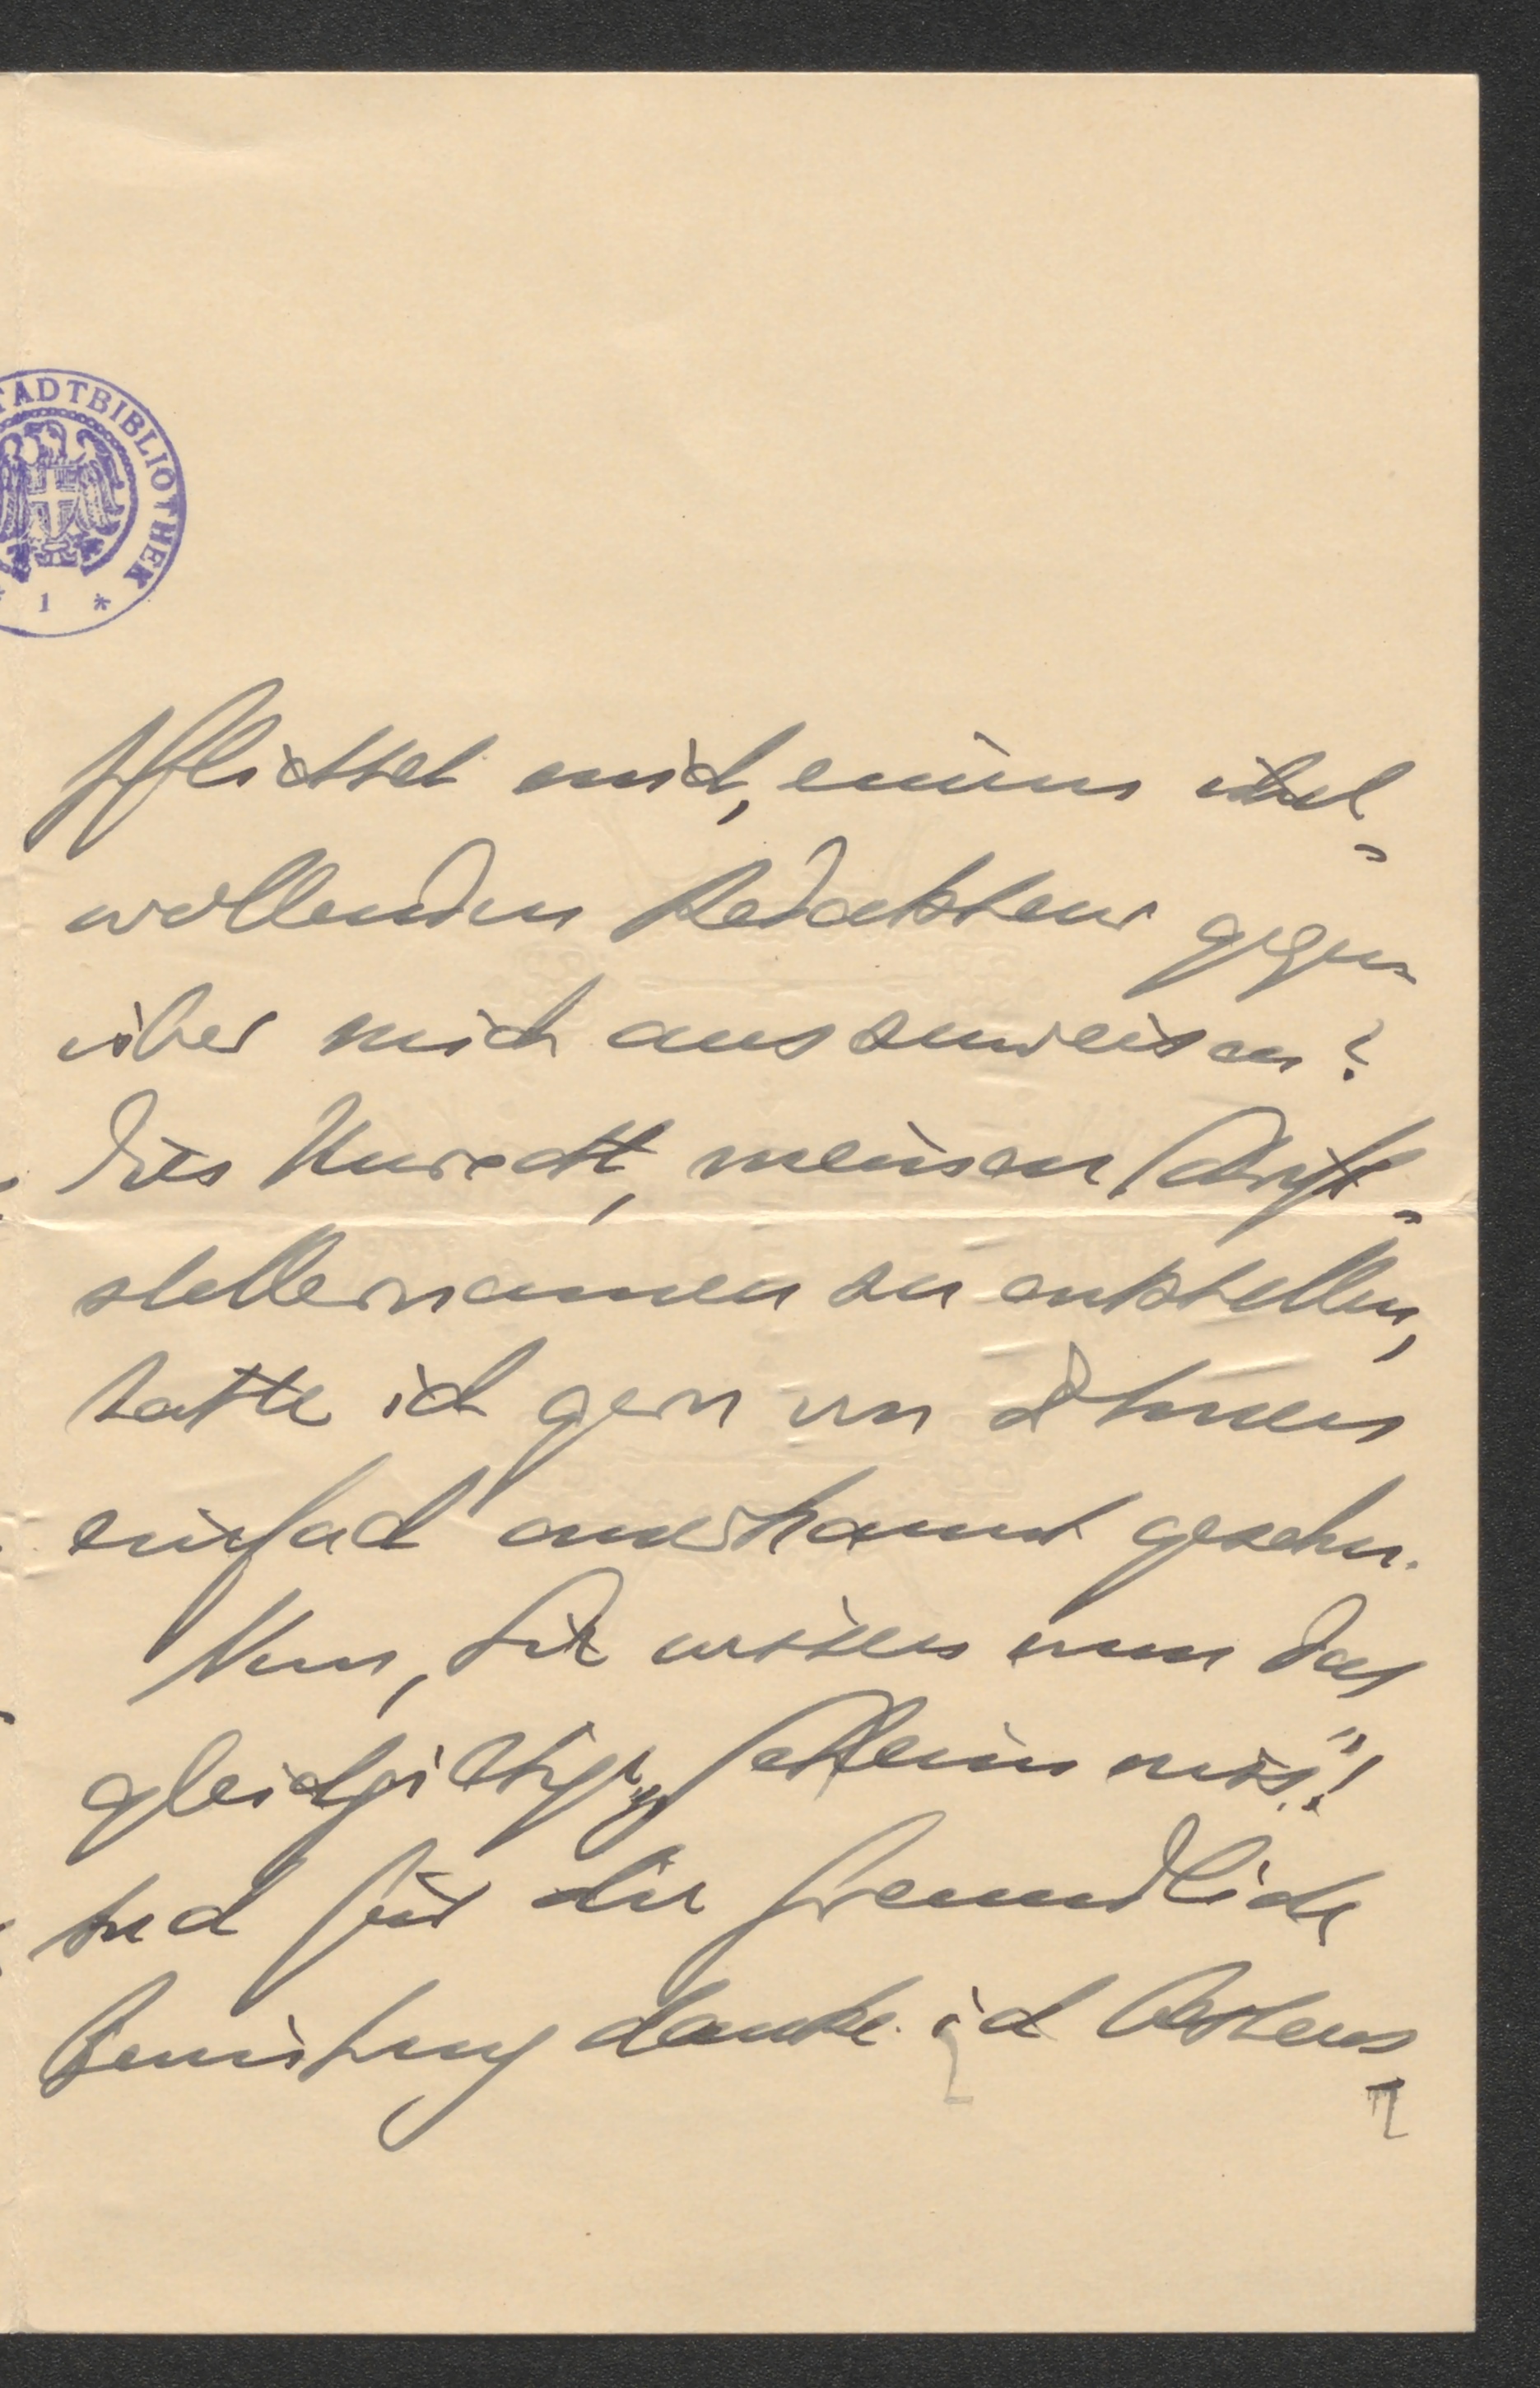 STADTBIBLIOTHEK
* 1 *
pflichtet mich, einem übel-
wollenden Redakteur gegen-
über mich auszuweisen?
Dies Unrecht, meinen Schrift-
stellernamen zu entstellen,
hätte ich gern von Ihnen
einfach anerkannt gesehn.
Nun, Sie wissen nun das
gleichgiltige „Geheimnis"!
und für die freundliche
Bemühung danke ich bestens